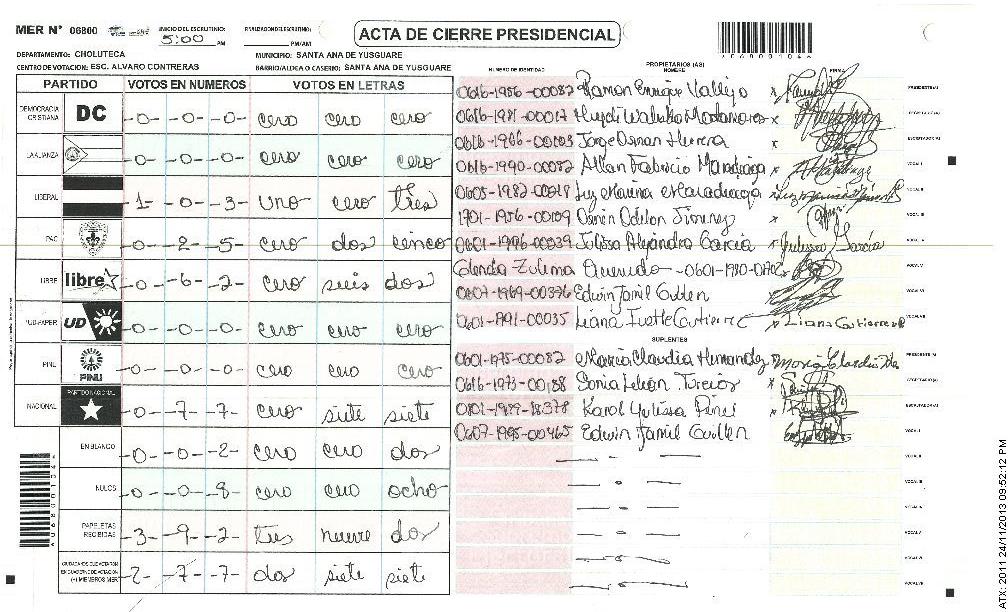 MER N° 06860 INICIO DEL ESCRUTINIO: 5:00 PM FINALIZACION DEL ESCRUTINIO: PM/AM
ACTA DE CIERRE PRESIDENCIAL
DEPARTAMENTO: CHOLUTECA MUNICIPIO: SANTA ANA DE YUSGUARE
CENTRO DE VOTACION: ESC. ALVARO CONTRERAS BARRIO/ALDEA O CASERIO: SANTA ANA DE YUSGUARE
PARTIDO VOTOS EN NUMEROS VOTOS EN LETRAS
DEMOCRACIA CRISTIANA DC -0- -0- -0- cero cero cero
LA ALIANZA -0- -0- -0- cero cero cero
LIBERAL -1- -0- -3- uno cero tres
PAC -0- -2- -5- cero dos cinco
LIBRE libre -0- -6- -2- cero seis dos
UD-FAPER UD -0- -0- -0- cero cero cero
PINU PINU -0- -0- -0- cero cero cero
NACIONAL PARTIDO NACIONAL -0- -7- -7- cero siete siete
EN BLANCO -0- -0- -2- cero cero dos
NULOS -0- -0- -8- cero cero ocho
PAPELETAS RECIBIDAS -3- -9- -2- tres nueve dos
CIUDADANOS QUE VOTARON EN CUADERNO DE VOTACION (+) MIEMBROS MER -2- -7- -7- dos siete siete
NUMERO DE IDENTIDAD PROPIETARIOS (AS) NOMBRE FIRMA
0616-1956-00087 Ramon Enrique Vallejo PRESIDENTE(A)
0616-1981-00017 SECRETARIO(A)
Jorge Osman Herrera ESCRUTADOR(A)
0616-1990-00082 Allan Fabricio Maradiaga VOCAL I
0605-1982-00018 Luz Marina Maradiaga VOCAL II
1701-1956-00109 Odilon Jimenez VOCAL III
0601-1996-00039 Julissa Alejandra Garcia Julissa García
Glenda Zulema
0607-1969-00376 Edwin Jamil Guillen
Liana Ivette Gutierrez Liana Gutierrez
SUPLENTES
0601-1975-00082 Maria Claudia Hernandez PRESIDENTE(A)
Sonia SECRETARIO(A)
Karol Yulissa ESCRUTADOR(A)
0607-1995-00465 Edwin Jamil Guillen VOCAL I
06860104
ATX: 2011 24/11/2013 09:52:12 PM